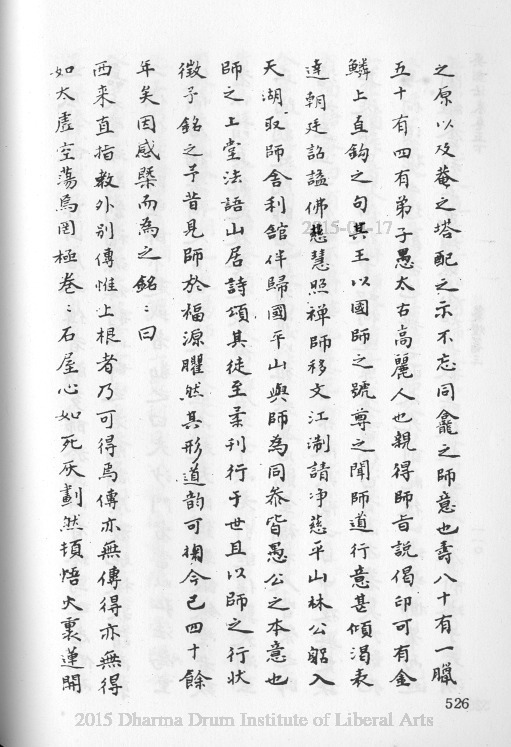 之原以及菴之塔配之示不忘同龕之師意也壽八十有一臘
五十有四有弟子愚太古高麗人也親得師旨說偈印可有金
鱗上直鈎之句其王以國師之號尊之聞師道行意甚傾渴表
達朝廷詔謚佛慈慧照禅師移文江淛請净慈平山林公躬入
天湖取師舍利舘伴歸國平山與師為同叅皆愚公之本意也
師之上堂法語山居詩頌其徒至柔刊行于世且以師之行狀
徵予銘之予昔見師於福源臞然其形道韵可掬今已四十餘
年矣因感槩而為之銘：曰
西来直指敎外別傳惟上根者乃可得焉傳亦無傳得亦無得
如太虛空蕩焉罔極卷：石屋心如死灰劃然頓悟火裏蓮開
526
2015-04-17
2015 Dharma Drum Institute of Liberal Arts